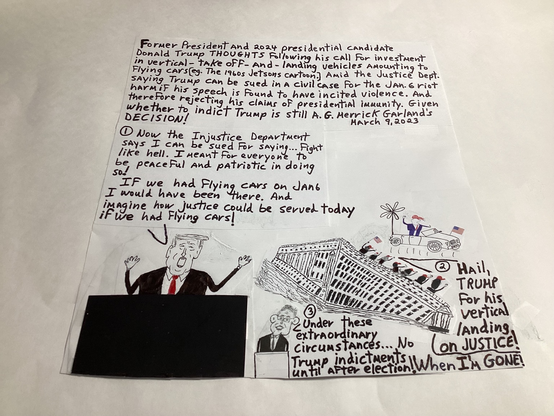 Former President and 2024 presidential candidate
Donald Trump THOUGHTS Following his call For investment
in vertical-take off-and-landing vehicles amounting to
Flying cars(eg. The 1960s Jetsons cartoon.) Amid the Justice Dept.
saying Trump can be sued in a civil case For the Jan.6 riot
harm if his speech is found to have incited violence. And
therefore rejecting his claims of presidential immunity. Given
whether to indict Trump is still A.G. Merrick Garland's
DECISION!
March 9, 2023
① Now the Injustice Department
says I can be sued For saying... Fight
like hell. I meant For everyone to
be peaceful and patriotic in doing
so!
IF we had Flying cars on JAN6
I would have been there. And
imagine how justice could be served today
if we had Flying cars!
② Hail,
TRUMP
For his
vertical
landing,
(on JUSTICE!
When I'M GONE!
③
Under these
extraordinary
circumstances... No
Trump indictments
until after election!